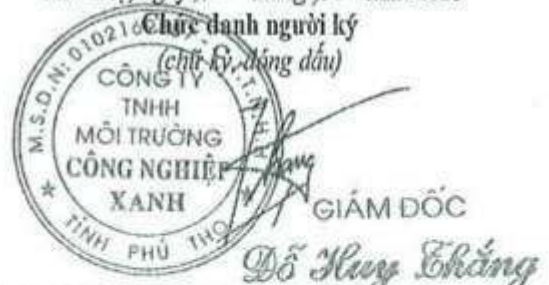 Chức danh người ký
(chữ ký, đóng dấu)
M.S.D.N: 010216
CÔNG TY
TNHH
MÔI TRƯỜNG
CÔNG NGHIỆP
XANH
TỈNH PHÚ THỌ
GIÁM ĐỐC
Đỗ Huy Thắng